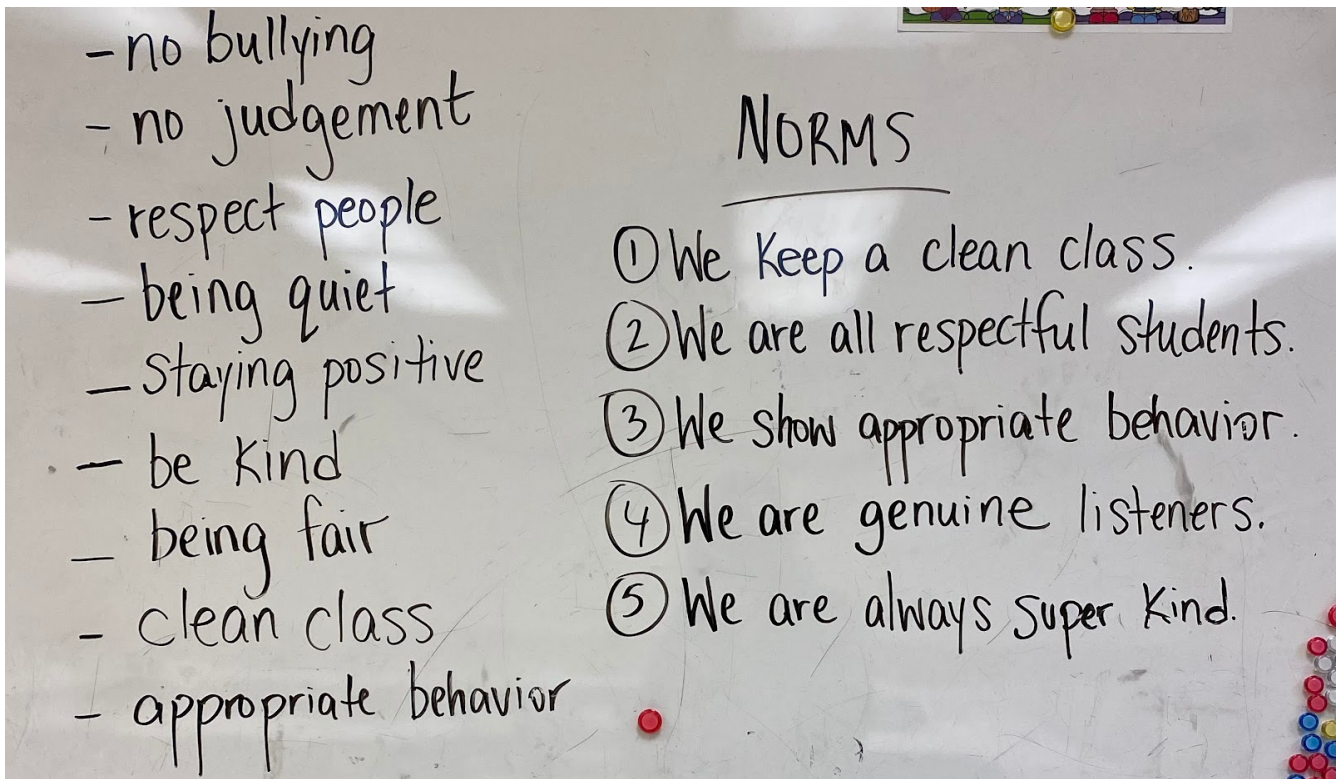 - no bullying
- no judgement
- respect people
- being quiet
- staying positive
- be kind
- being fair
- clean class
- appropriate behavior
NORMS
① We keep a clean class.
② We are all respectful students.
③ We show appropriate behavior.
④ We are genuine listeners.
⑤ We are always super kind.